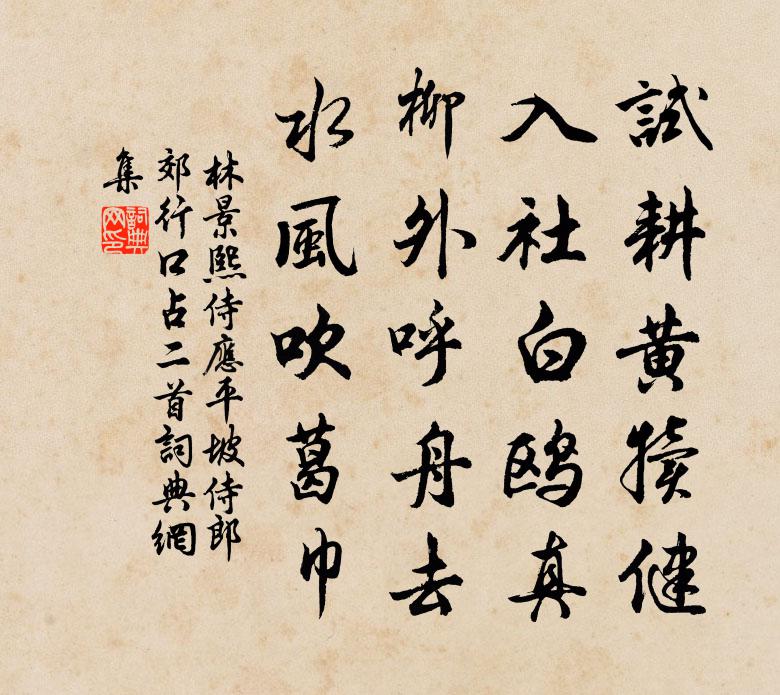 試耕黄犢健
入社白鷗真
柳外呼舟去
水風吹葛巾
林景熙侍應平坡侍郎
郊行口占二首詞典網
集
詞典
网印